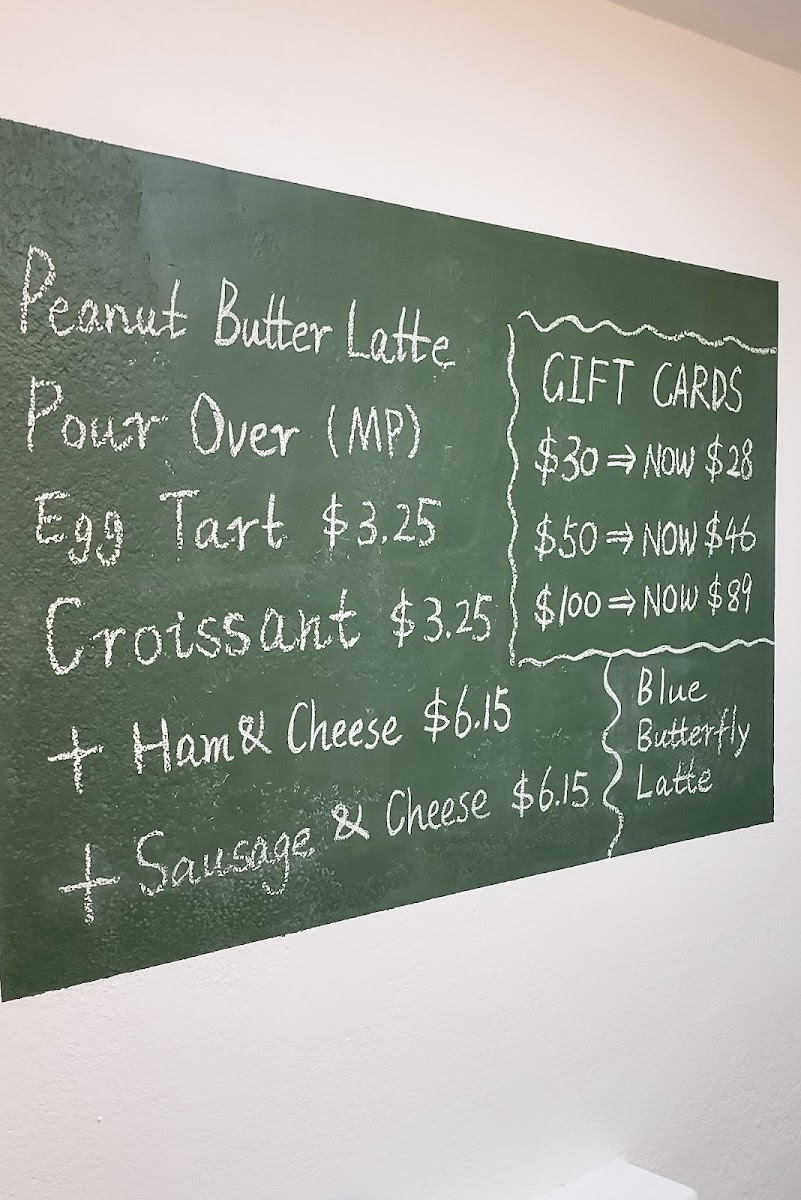 Peanut Butter Latte
Pour Over (MP)
Egg Tart $3.25
Croissant $3.25
+ Ham & Cheese $6.15
+ Sausage & Cheese $6.15
GIFT CARDS
$30 ⇒ NOW $28
$50 ⇒ NOW $46
$100 ⇒ NOW $89
Blue
Butterfly
Latte